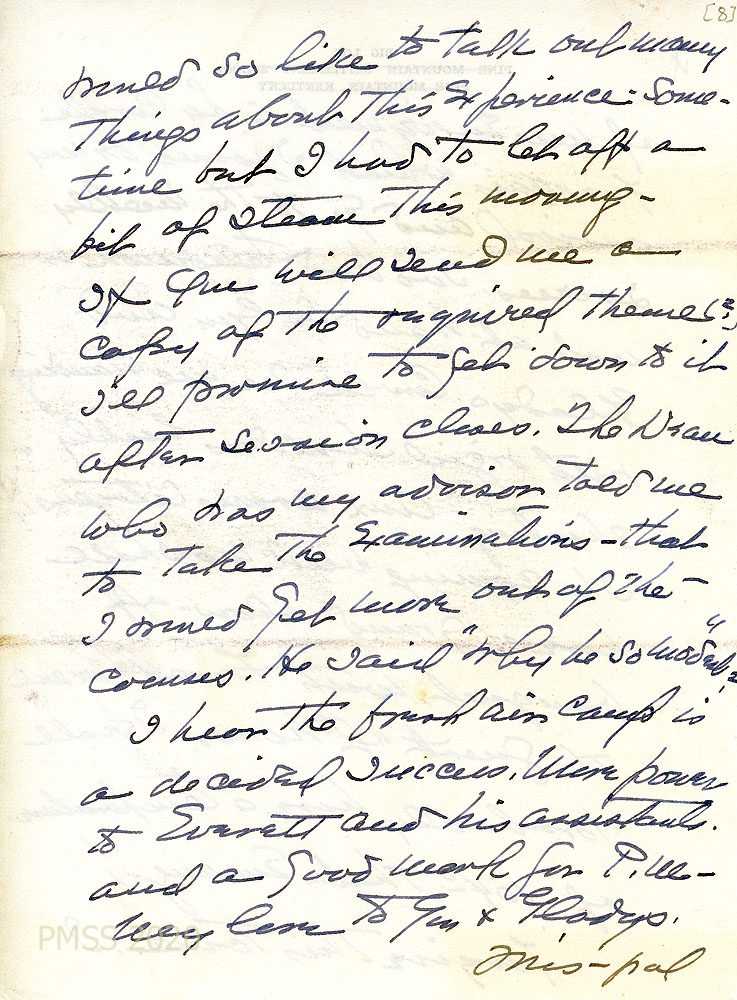 [8]
would so like to talk out many
things about this experience - Some-
time but I had to let off a
bit of steam this morning -
If you will send me a
copy of the required theme (?)
I'll promise to get down to it
after session closes. The Dean
who was my advisor told me
to take the Examinations - that
I would get more out of the
courses. He said "why be so modest"?
I hear the fresh air camp is
a decided success. More power
to Everett and his assistants.
and a good mark for P.M. -
Very love to you & Gladys.
PMSS 2020